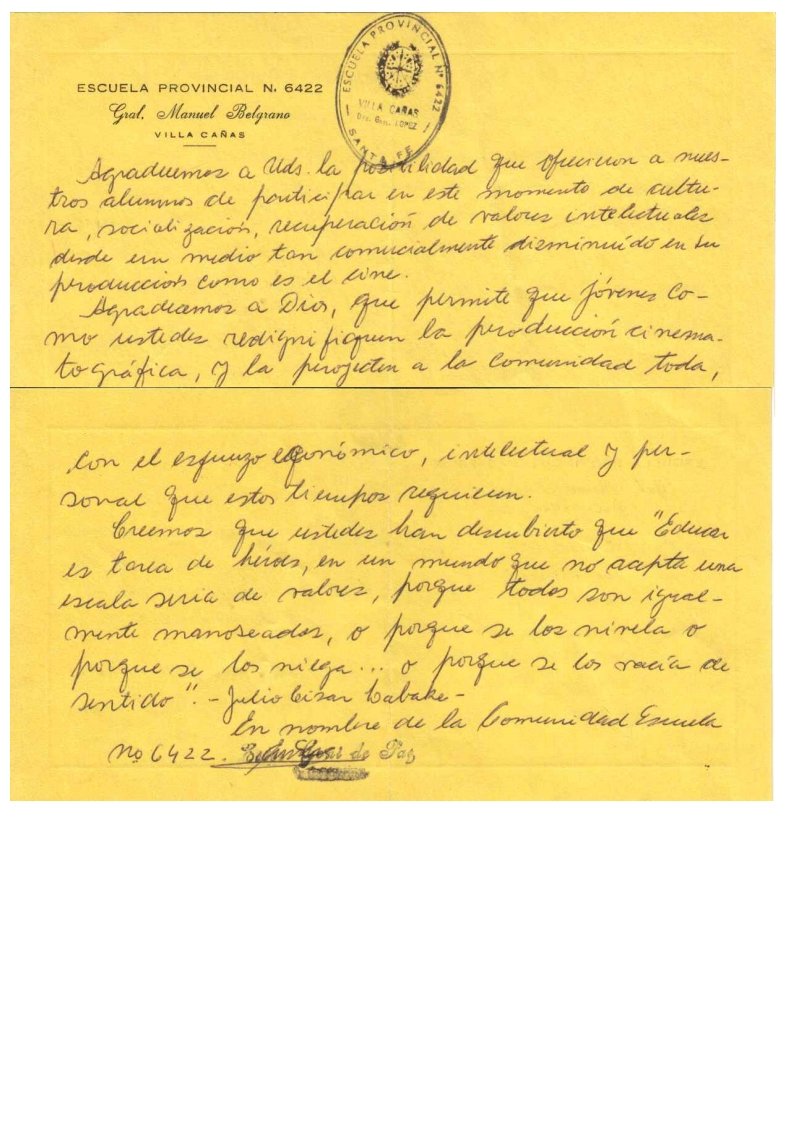 ESCUELA PROVINCIAL N. 6422
Gral. Manuel Belgrano
VILLA CAÑAS
ESCUELA PROVINCIAL Nº 6422
VILLA CAÑAS
Dto. Gral. LOPEZ
SANTA FE
Agradecemos a Uds. la posibilidad que ofrecieron a nues-
tros alumnos de participar en este momento de cultu-
ra, socialización, recuperación de valores intelectuales
desde un medio tan comercialmente disminuído en su
producción como es el cine.
Agradecemos a Dios, que permite que jóvenes co-
mo ustedes redignifiquen la producción cinema-
tográfica, y la proyecten a la comunidad toda,
con el esfuerzo económico, intelectual y per-
sonal que estos tiempos requieren.
Creemos que ustedes han descubierto que "Educar
es tarea de héroes, en un mundo que no acepta una
escala seria de valores, porque todos son igual-
mente manoseados, o porque se los nivela o
porque se los niega... o porque se los vacía de
sentido". - Julio César Labaké -
En nombre de la Comunidad Escuela
Nº 6422. de Paz